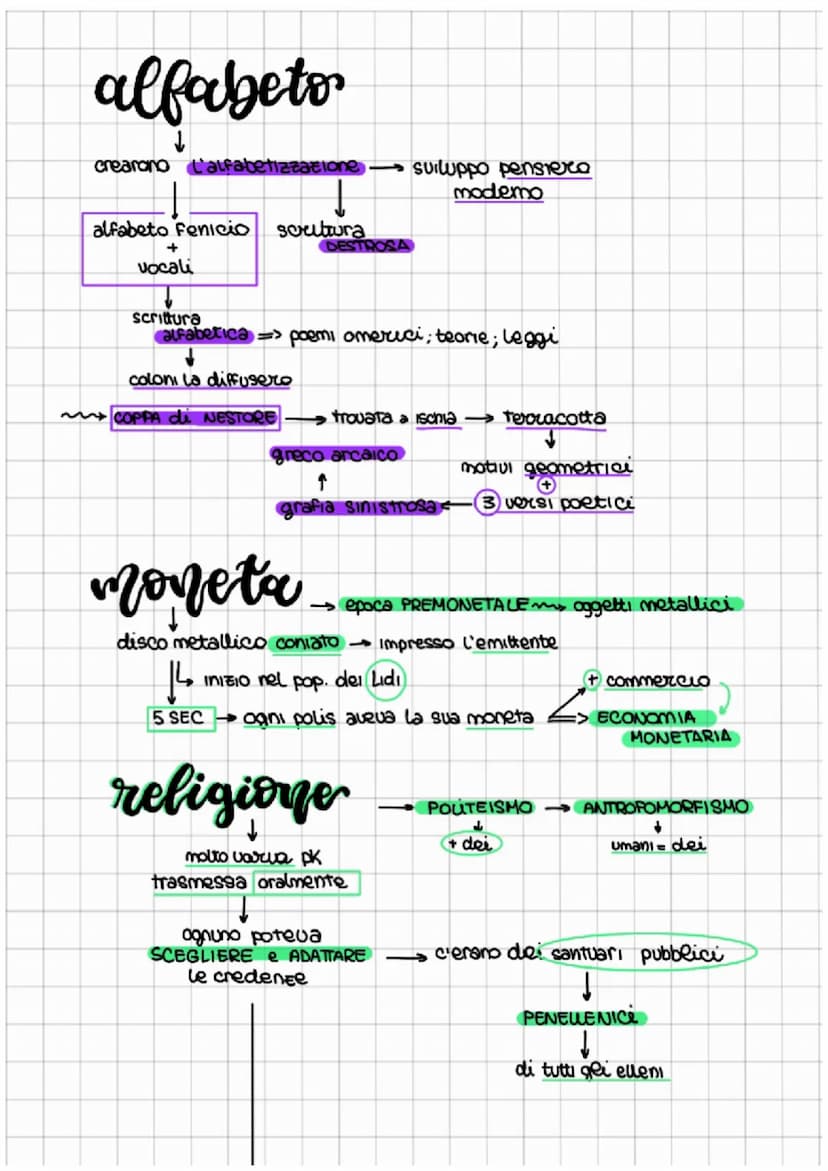 alfabeto
↓
crearono l'alfabetizzazione → sviluppo pensiero
moderno
alfabeto fenicio scrittura
+ DESTROSA
vocali
scrittura
alfabetica => poemi omerici; teorie; leggi
coloni la diffusero
COPPA di NESTORE → trovata a ischia → terracotta
greco arcaico
motivi geometrici
+
grafia sinistrosa ← 3 versi poetici
moneta → epoca PREMONETALE → oggetti metallici
disco metallico coniato → impresso l'emittente
↳ inizio nel pop. dei Lidi + commercio
5 SEC → ogni polis aveva la sua moneta => ECONOMIA
MONETARIA
religione → POLITEISMO → ANTROFOMORFISMO
+ dei umani = dei
molto varia pk
trasmessa oralmente
ognuno poteva
SCEGLIERE e ADATTARE → c'erano dei santuari pubblici
le credenze
PENELLENICI
di tutti gli elleni